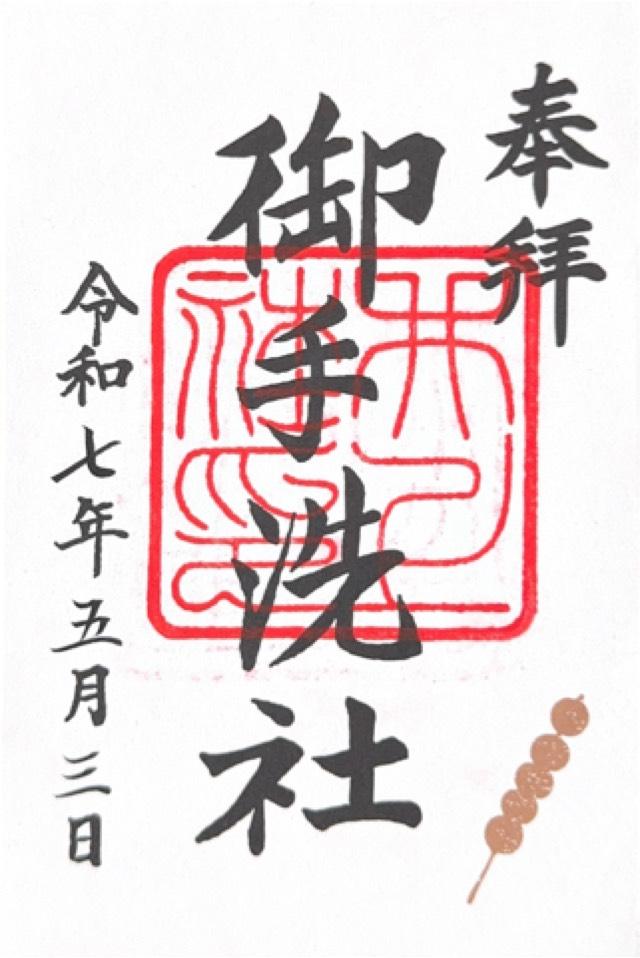 奉拝
御手洗社
令和七年五月三日